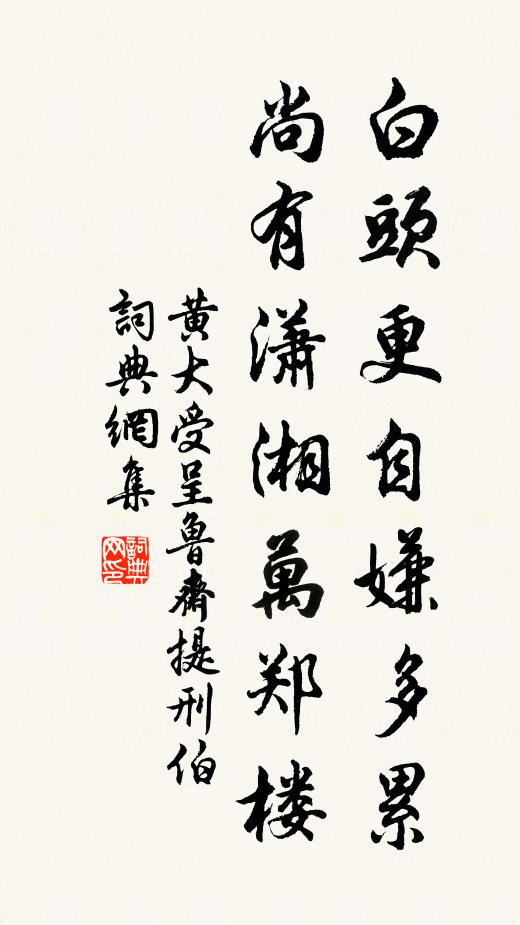 白頭更自嫌多累
尚有瀟湘萬郑楼
黄大受呈魯齋提刑伯
詞典網集
詞典网印